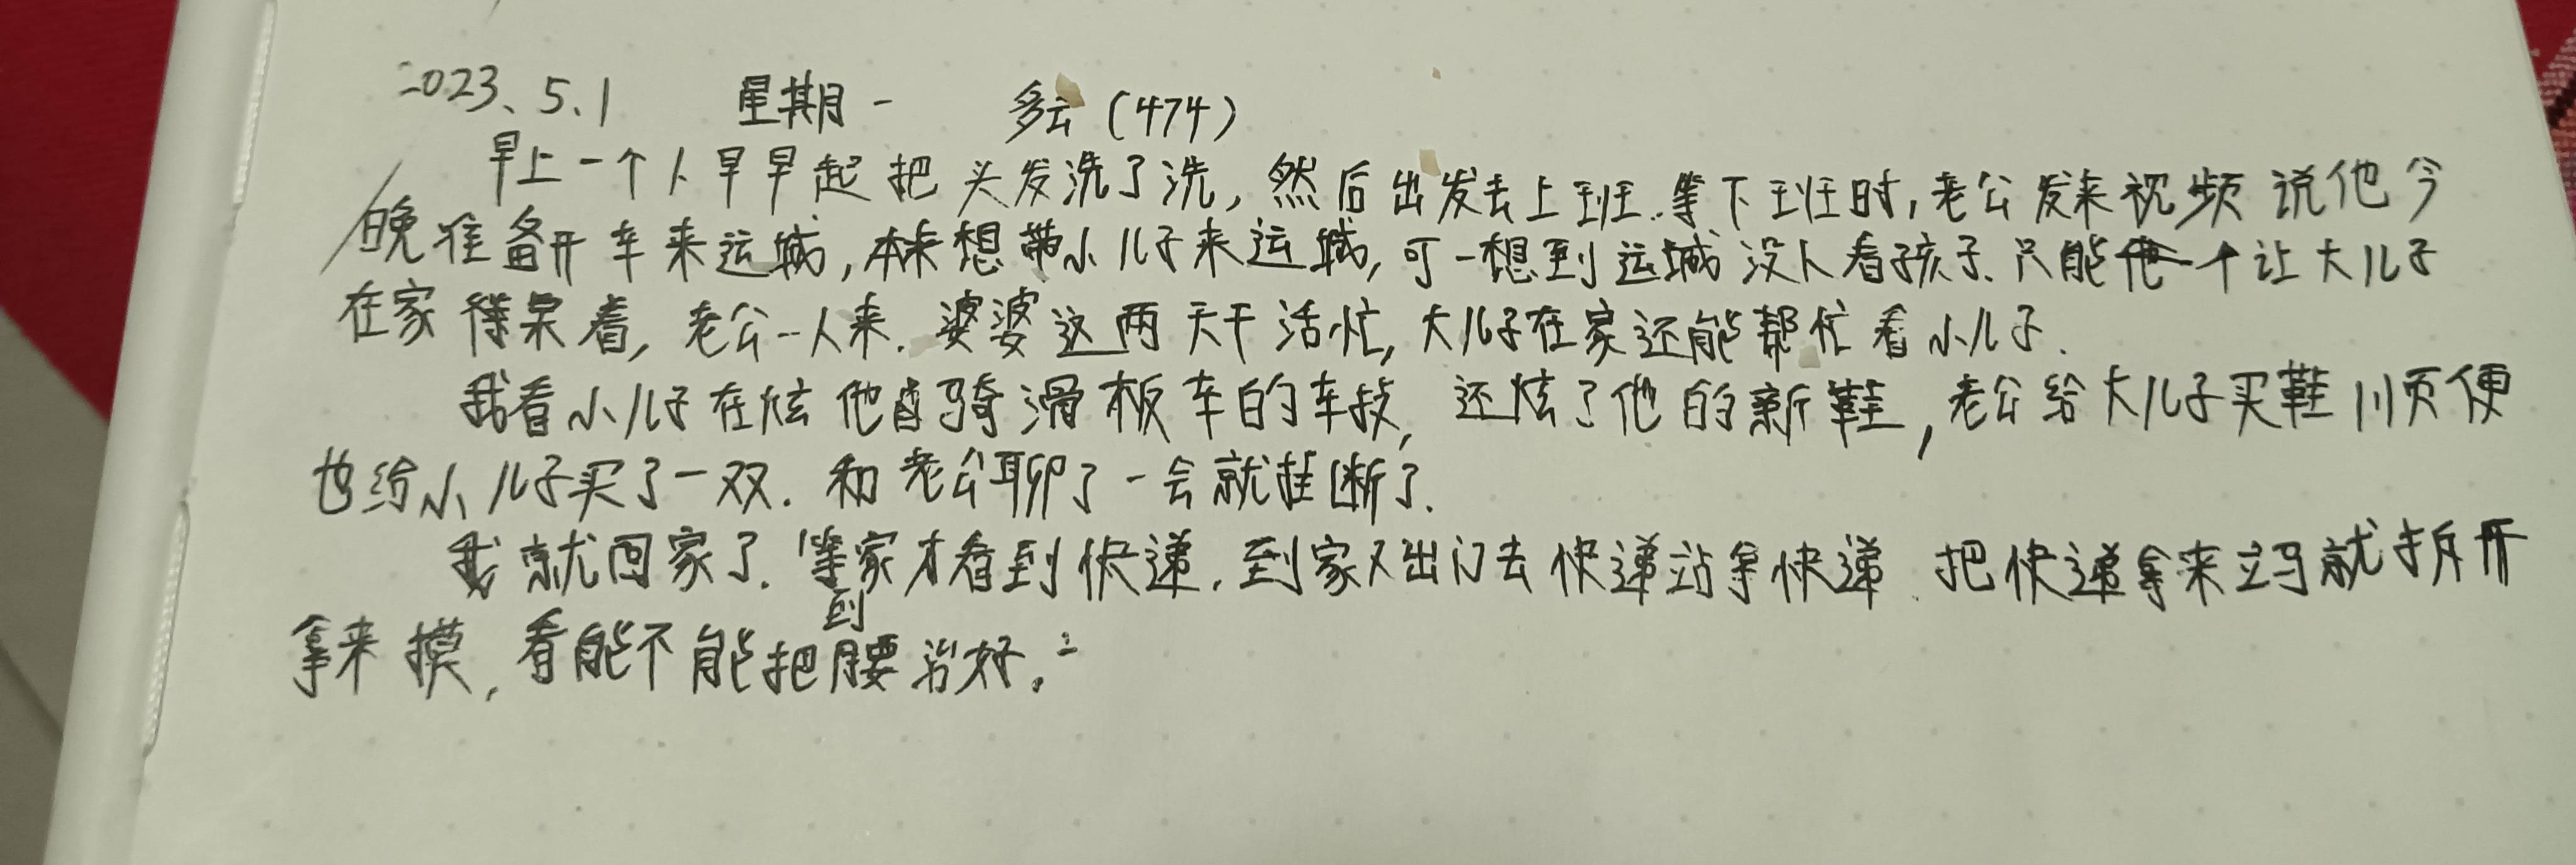 2023、5、1 星期一 多云(474)
早上一个人早早起把头发洗了洗,然后出发去上班.等下班时,老公发来视频说他今
晚准备开车来运城,本来想带小儿子来运城,可一想到运城没人看孩子.只能他一个让大儿子
在家待呆着,老公一人来.婆婆这两天干活忙,大儿子在家还能帮忙看小儿子.
我看小儿子在炫他骑滑板车的车技,还炫了他的新鞋,老公给大儿子买鞋顺便
也给小儿子买了一双.和老公聊了一会就挂断了.
我就回家了.等到家才看到快递.到家又出门去快递站拿快递.把快递拿来立马就拆开
拿来摸,看能不能把腰治好。